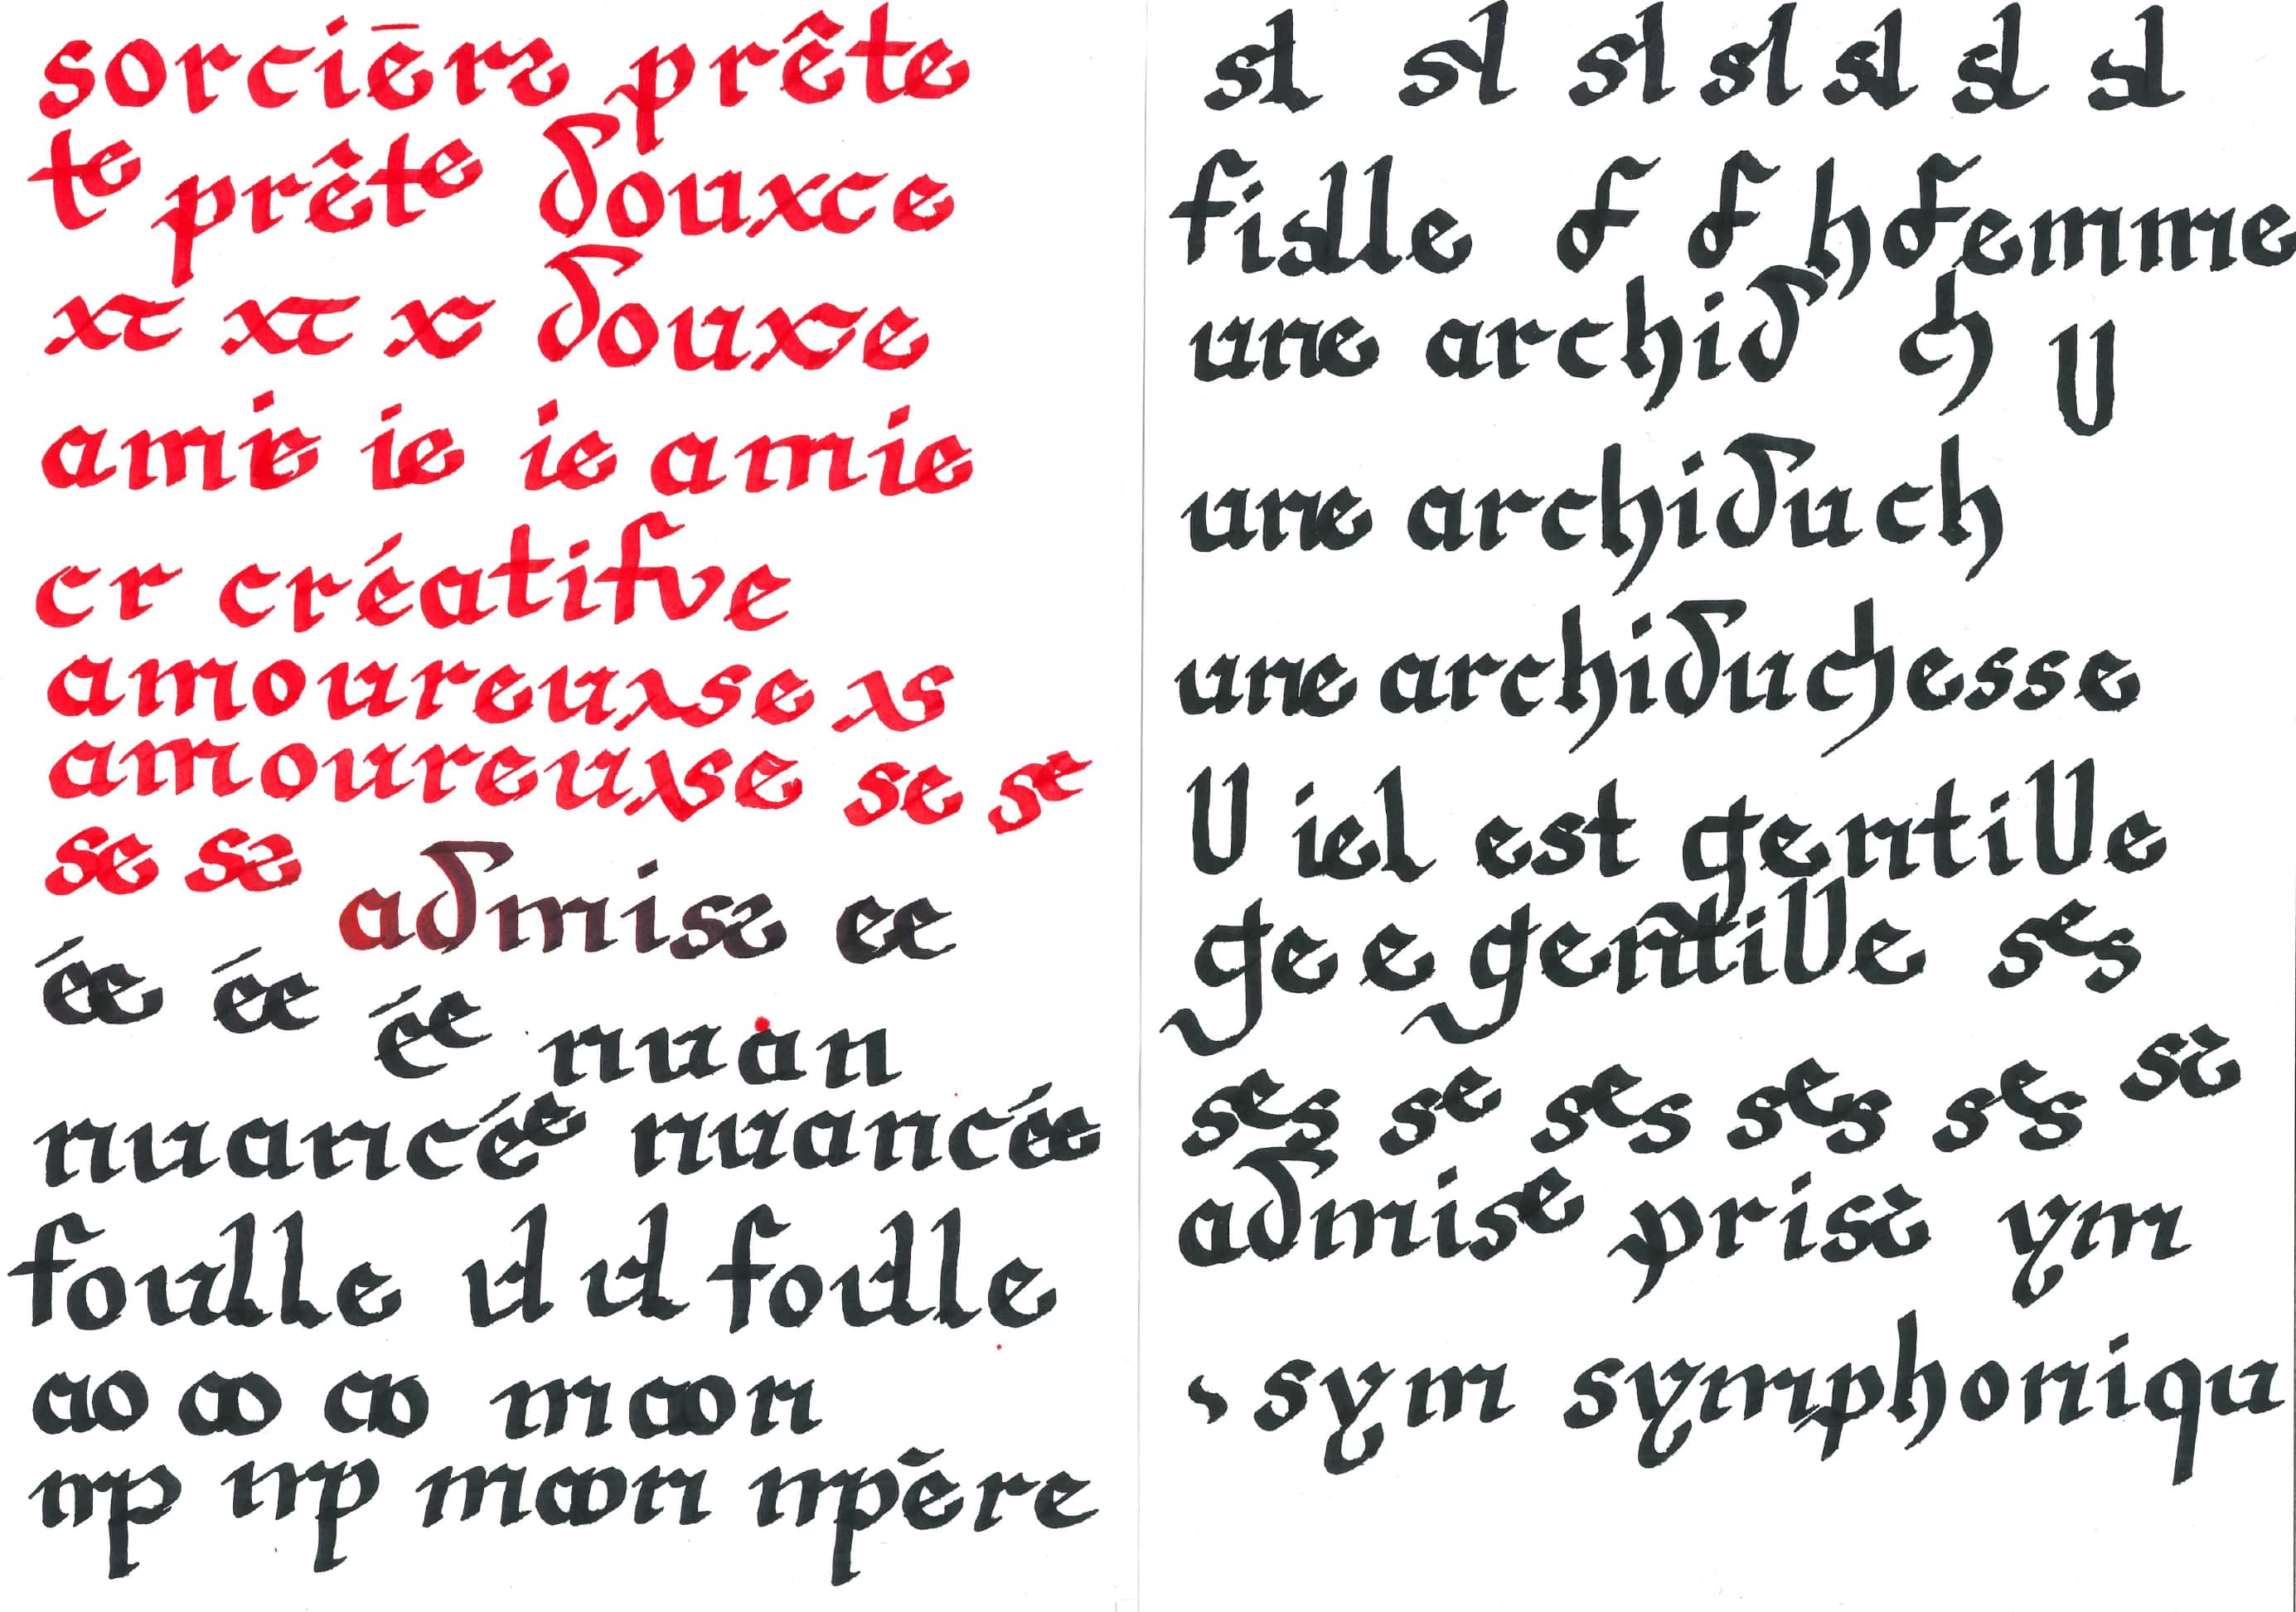 sorcière prête
te prête douxce
xc xc x douxe
amie ie ie amie
cr créatifve
amoureuxse xs
amoureuxse se se
se se admise ee
ée ée ée nuan
nuancée nuancée
foulle ul ul foulle
ao ao ao maon
mp mp maon mpère
sl sl sl sl sl sl sl
fislle f f h femme
une archid ch ll
une archiduch
une archiduchesse
ll iel est gentille
ge e gentille ses
ses se ses ses ses se
admise prise ym
sym symphoniqu